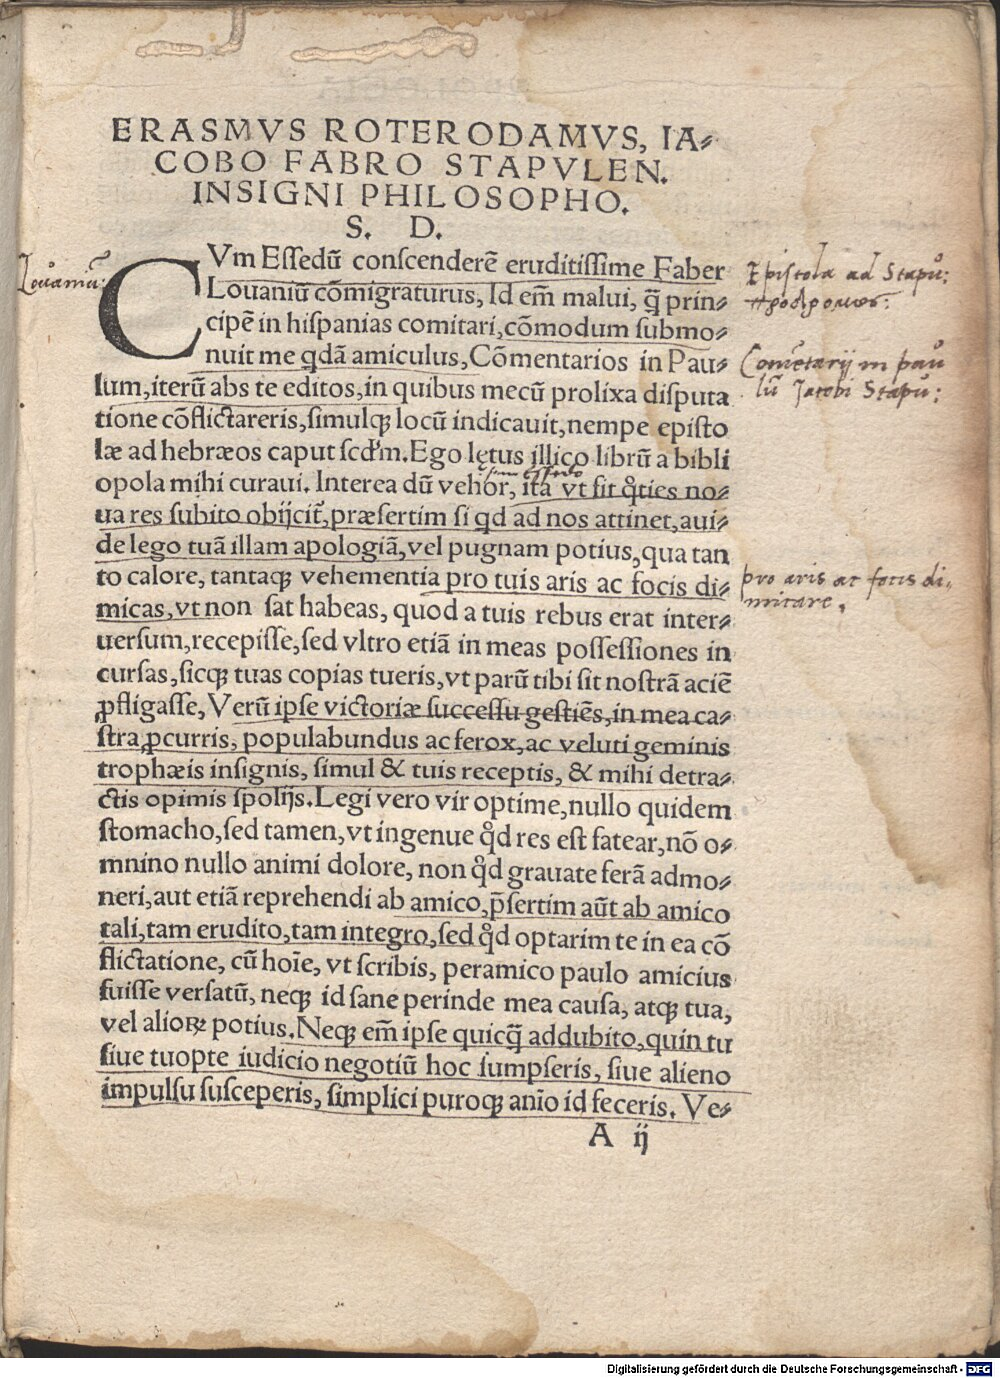 ERASMVS ROTERODAMVS, IA⸗
COBO FABRO STAPVLEN.
INSIGNI PHILOSOPHO.
S. D.
CVm Essedũ conscenderẽ eruditissime Faber
Louaniũ cõmigraturus, Id em̃ malui, q̃ prin⸗
cipẽ in hispanias comitari, cõmodum submo⸗
nuit me qdã amiculus, Cõmentarios in Pau⸗
lum, iterũ abs te editos, in quibus mecũ prolixa disputa
tione cõflictareris, simulqꝫ locũ indicauit, nempe episto
læ ad hebræos caput scd'm. Ego lętus illico librũ a bibli
opola mihi curaui. Interea dũ vehor, ita vt fit q̊ties no⸗
ua res subito obijcit̃, præsertim si qd ad nos attinet, aui⸗
de lego tuã illam apologiã, vel pugnam potius, qua tan
to calore, tantaqꝫ vehementia pro tuis aris ac focis di⸗
micas, vt non sat habeas, quod a tuis rebus erat inter⸗
uersum, recepisse, sed vltro etiã in meas possessiones in
cursas, sicqꝫ tuas copias tueris, vt parũ tibi sit nostrã aciẽ
ꝓfligasse, Verũ ipse victoriæ successu gestiẽs, in mea ca⸗
stra ꝓcurris, populabundus ac ferox, ac veluti geminis
trophæis insignis, simul & tuis receptis, & mihi detra⸗
ctis opimis spolijs. Legi vero vir optime, nullo quidem
stomacho, sed tamen, vt ingenue q̊d res est fatear, nõ o⸗
mnino nullo animi dolore, non q̊d grauate ferã admo⸗
neri, aut etiã reprehendi ab amico, p̃sertim aũt ab amico
tali, tam erudito, tam integro, sed q̊d optarim te in ea cõ
flictatione, cũ hoĩe, vt scribis, peramico paulo amicius
fuisse versatũ, neqꝫ id sane perinde mea causa, atqꝫ tua,
vel alioꝝ potius. Neqꝫ em̃ ipse quicq̃ addubito, quin tu
siue tuopte iudicio negotiũ hoc sumpseris, siue alieno
impulsu susceperis, simplici puroqꝫ anĩo id feceris. Ve⸗
A ij
Louaniũ:
Epistola ad Stapũ:
πρόδρομος:
Com̃etarij in pau
lũ Jacobi Stapũ:
pro aris ac focis di⸗
micare.
Digitalisierung gefördert durch die Deutsche Forschungsgemeinschaft - DFG